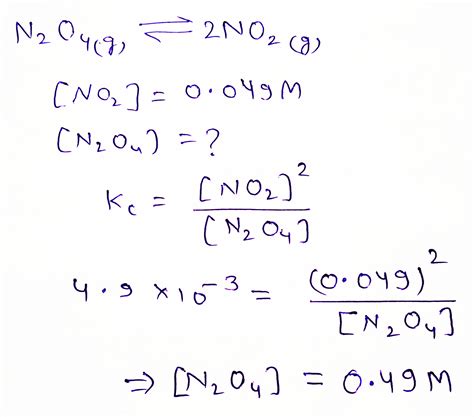 N₂O₄(g) ⇌ 2NO₂(g)
[NO₂] = 0.049M
[N₂O₄] = ?
Kc = [NO₂]² / [N₂O₄]
4.9 × 10⁻³ = (0.049)² / [N₂O₄]
⇒ [N₂O₄] = 0.49M